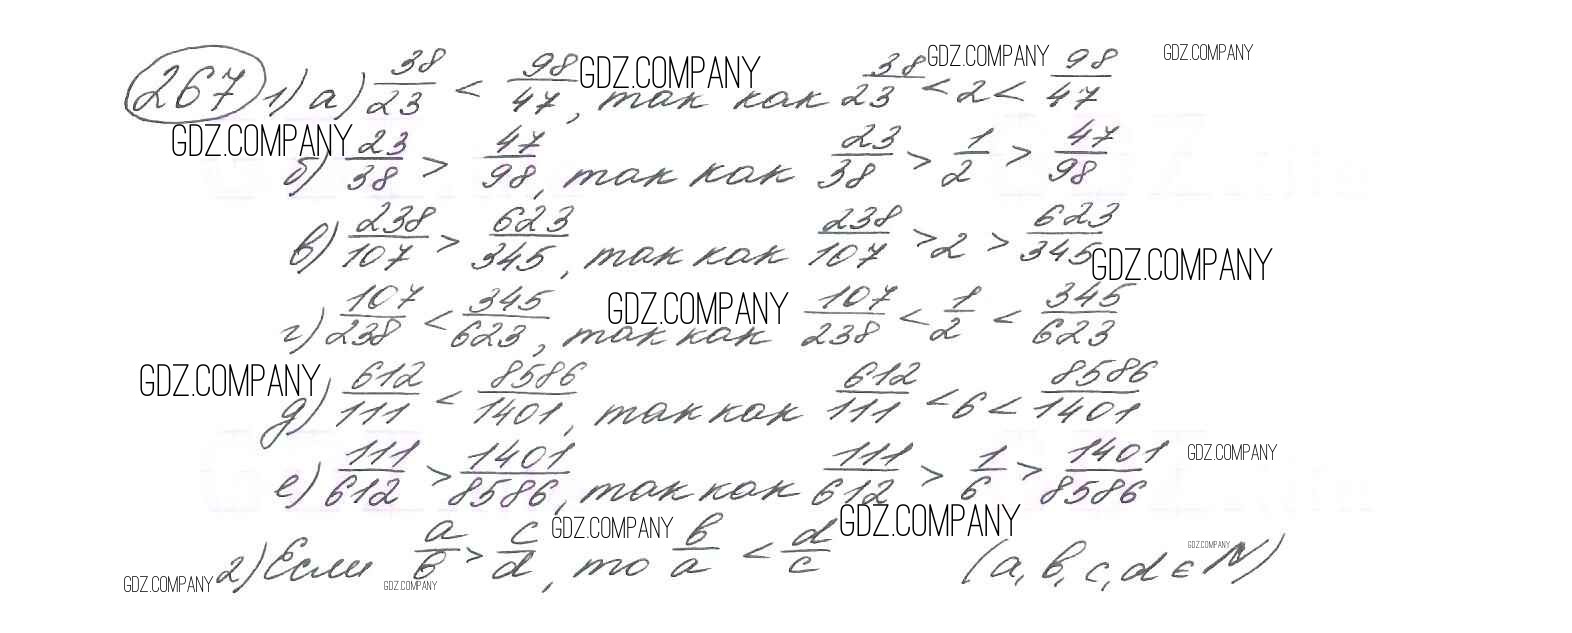 267 1) а) 38/23 < 98/47, так как 38/23 < 2 < 98/47 GDZ.COMPANY GDZ.COMPANY GDZ.COMPANY
GDZ.COMPANY
б) 23/38 > 47/98, так как 23/38 > 1/2 > 47/98
в) 238/107 > 623/345, так как 238/107 > 2 > 623/345 GDZ.COMPANY
г) 107/238 < 345/623, так как 107/238 < 1/2 < 345/623 GDZ.COMPANY
GDZ.COMPANY
д) 612/111 < 8586/1401, так как 612/111 < 6 < 8586/1401
е) 111/612 > 1401/8586, так как 111/612 > 1/6 > 1401/8586 GDZ.COMPANY
GDZ.COMPANY GDZ.COMPANY GDZ.COMPANY
2) Если a/b > c/d, то b/a < d/c (a, b, c, d ∈ N)
GDZ.COMPANY GDZ.COMPANY